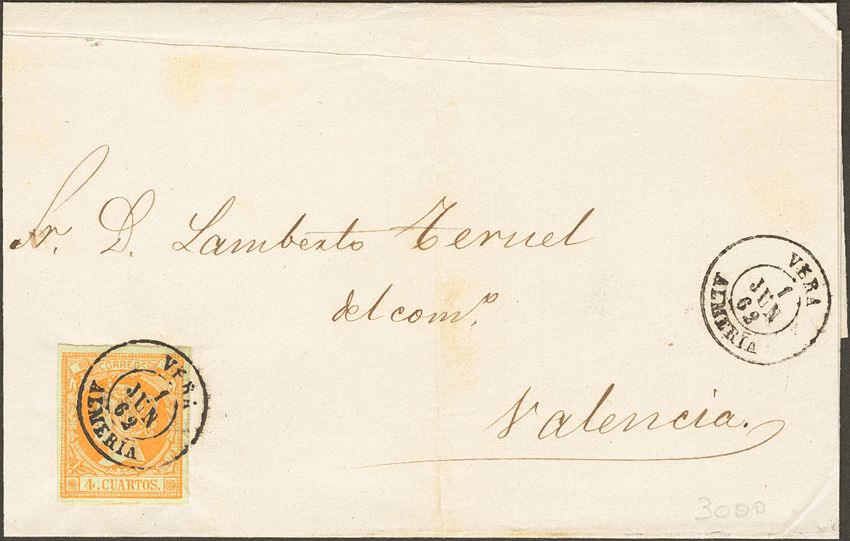 Sr. D. Lamberto Teruel
del com.º
Valencia.
VERA
1
JUN
62
ALMERÍA
CORREOS
VERA
1
JUN
62
ALMERÍA
4. CUARTOS.
3000